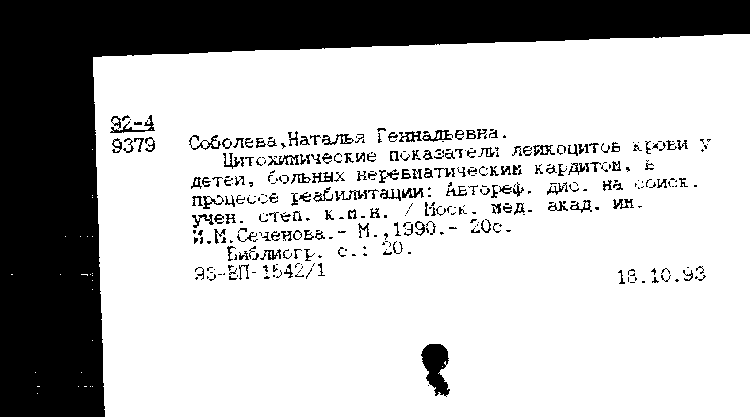 92-4
9379
Соболева,Наталья Геннадьевна.
Цитохимические показатели лейкоцитов крови у
детей, больных неревматическим кардитом, в
процессе реабилитации: Автореф. дис. на соиск.
учен. степ. к.м.н. / Моск. мед. акад. им.
И.М.Сеченова.- М.,1990.- 20с.
Библиогр. с.: 20.
93-ВП-1542/1
18.10.93